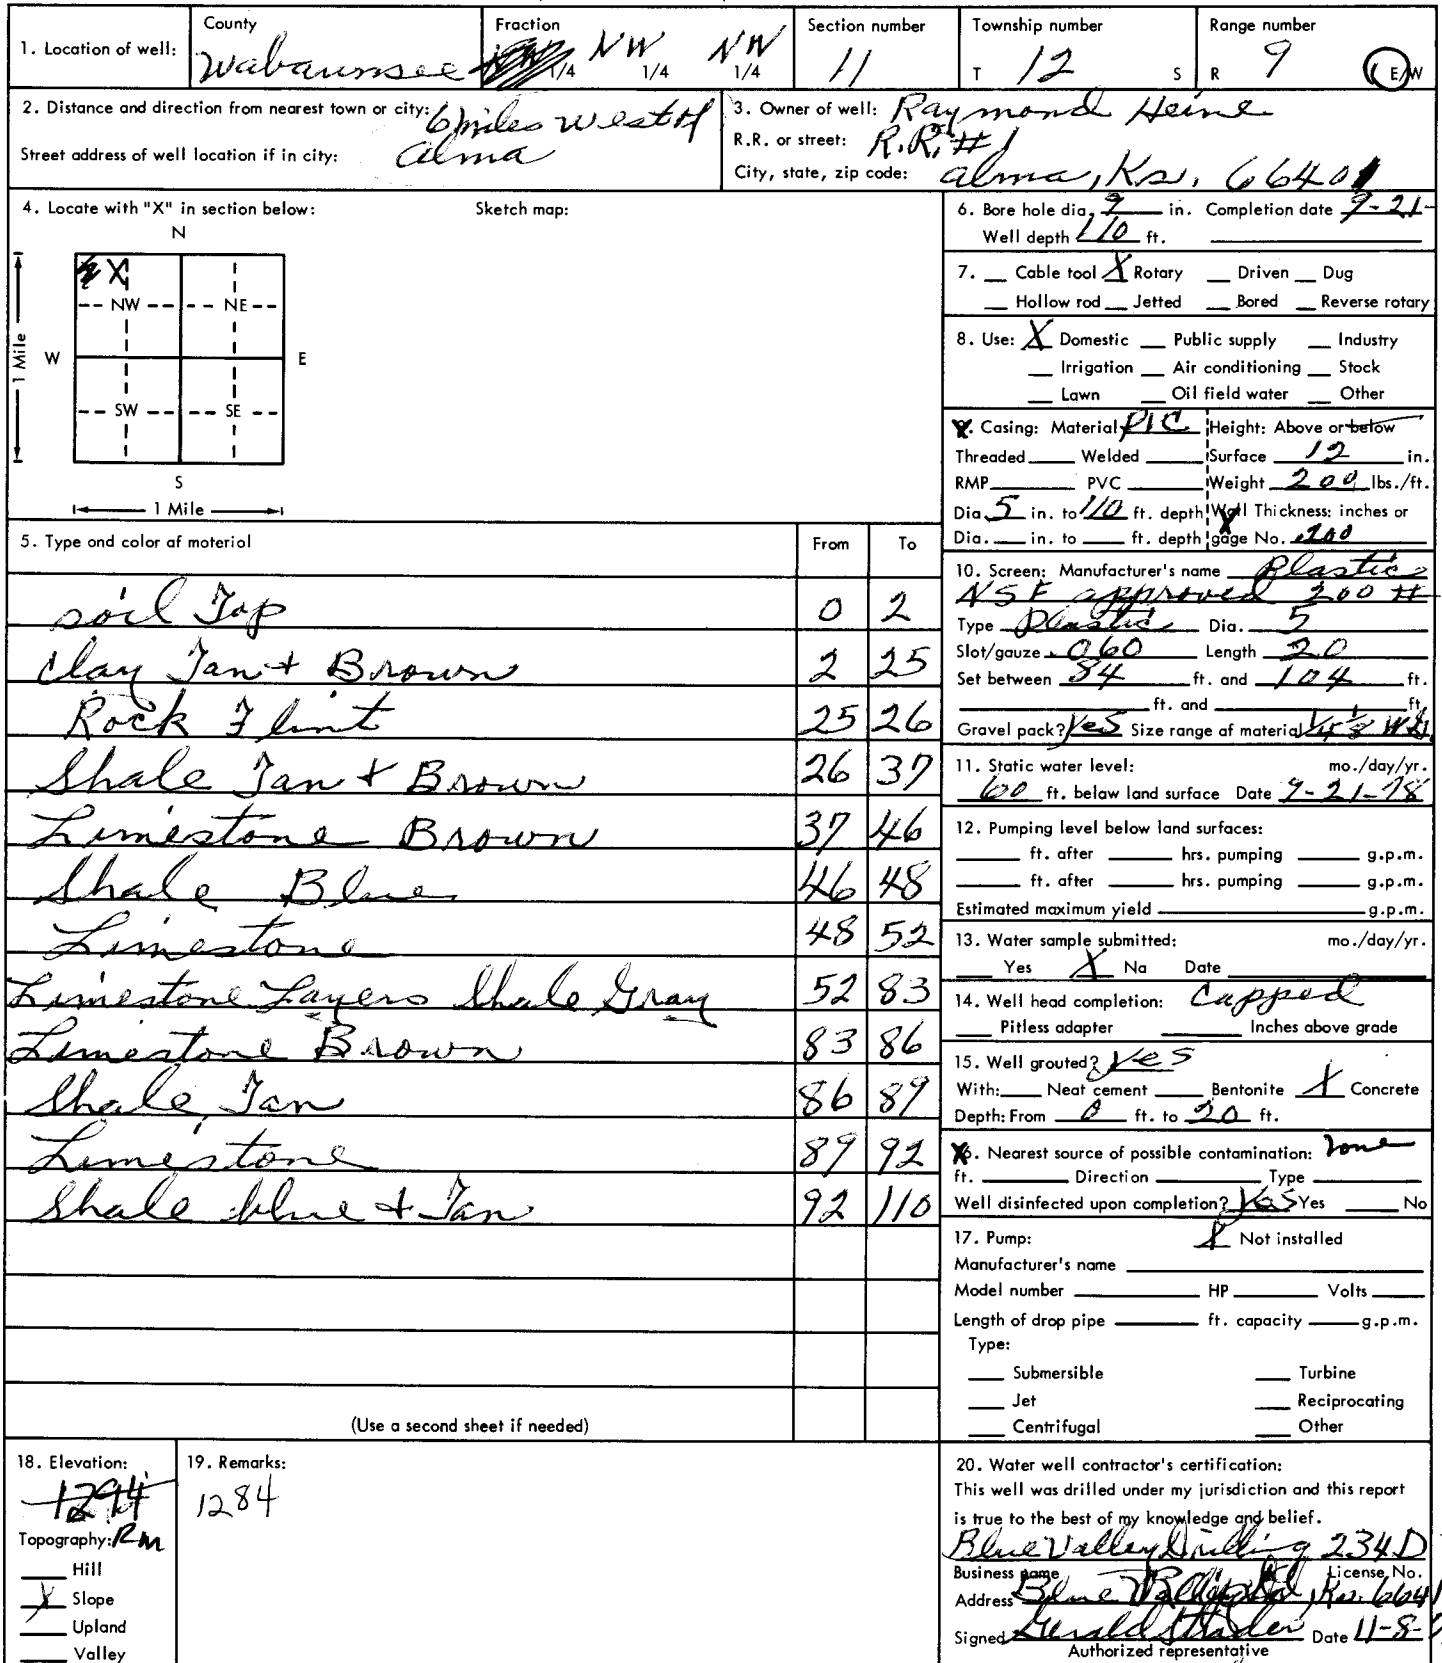 County Fraction Section number Township number Range number
1. Location of well: Wabaunsee 1/4 NW 1/4 NW 1/4 11 T 12 S R 9 E/W
2. Distance and direction from nearest town or city: 6 miles west of
Street address of well location if in city: Alma
3. Owner of well: Raymond Heine
R.R. or street: R.R. #1
City, state, zip code: Alma, Ks, 66401
4. Locate with "X" in section below: Sketch map:
N
X
NW NE
W E
1 Mile
SW SE
S
1 Mile
5. Type and color of material From To
soil Top 0 2
Clay Tan + Brown 2 25
Rock Flint 25 26
Shale Tan + Brown 26 37
Limestone Brown 37 46
Shale Blue 46 48
Limestone 48 52
Limestone Layers Shale Gray 52 83
Limestone Brown 83 86
Shale Tan 86 89
Limestone 89 92
Shale blue + Tan 92 110
(Use a second sheet if needed)
6. Bore hole dia. 9 in. Completion date 9-21-
Well depth 110 ft.
7. Cable tool X Rotary Driven Dug
Hollow rod Jetted Bored Reverse rotary
8. Use: X Domestic Public supply Industry
Irrigation Air conditioning Stock
Lawn Oil field water Other
9. Casing: Material Height: Above or below
Threaded Welded Surface 12 in.
RMP PVC Weight 200 lbs./ft.
Dia. 5 in. to 110 ft. depth Wall Thickness: inches or
Dia. in. to ft. depth gage No. .200
10. Screen: Manufacturer's name Plastic
NSF approved 200 #
Type Plastic Dia. 5
Slot/gauze .060 Length 20
Set between 84 ft. and 104 ft.
ft. and ft.
Gravel pack? Yes Size range of material
11. Static water level: mo./day/yr.
60 ft. below land surface Date 9-21-78
12. Pumping level below land surfaces:
ft. after hrs. pumping g.p.m.
ft. after hrs. pumping g.p.m.
Estimated maximum yield g.p.m.
13. Water sample submitted: mo./day/yr.
Yes X No Date
14. Well head completion: Capped
Pitless adapter Inches above grade
15. Well grouted? Yes
With: Neat cement Bentonite X Concrete
Depth: From 0 ft. to 20 ft.
16. Nearest source of possible contamination: none
ft. Direction Type
Well disinfected upon completion? Yes Yes No
17. Pump: X Not installed
Manufacturer's name
Model number HP Volts
Length of drop pipe ft. capacity g.p.m.
Type:
Submersible Turbine
Jet Reciprocating
Centrifugal Other
18. Elevation: 19. Remarks:
1294 1284
Topography: RM
Hill
X Slope
Upland
Valley
20. Water well contractor's certification:
This well was drilled under my jurisdiction and this report
is true to the best of my knowledge and belief.
Blue Valley Drilling 234D
Business name License No.
Address Blue Ks.
Signed Gerald Strader Date 11-8-
Authorized representative